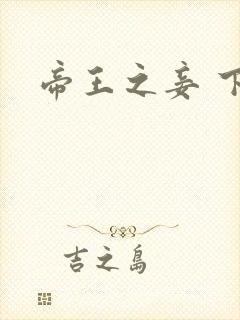 帝王之妾 下
吉之岛